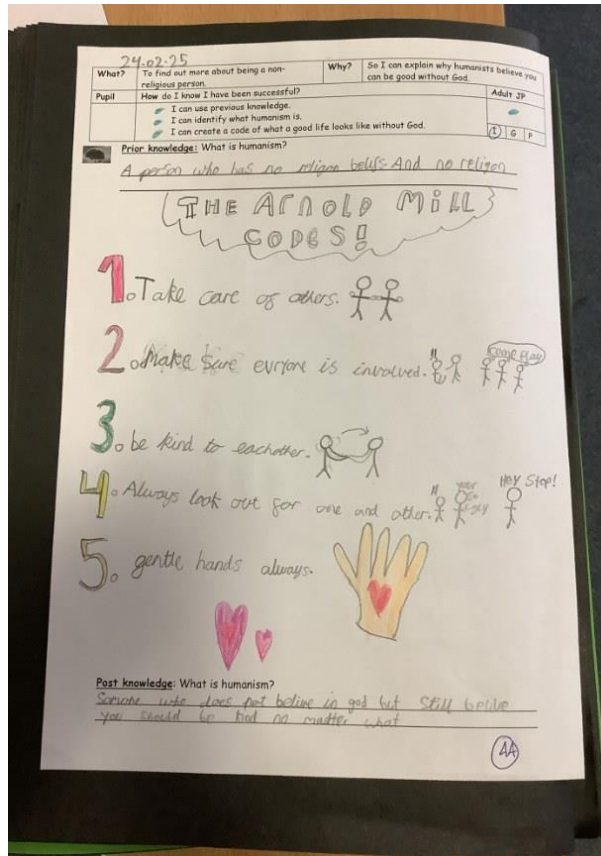 24-02-25
What? To find out more about being a non-religious person. Why? So I can explain why humanists believe you can be good without God.
Pupil How do I know I have been successful? Adult JP
I can use previous knowledge.
I can identify what humanism is.
I can create a code of what a good life looks like without God.
I G P
Prior knowledge: What is humanism?
A person who has no religon belifs And no religon
THE ArNOLD MiLL
CODES!
1. Take care of others.
2. Make Sure evryone is involved.
come play
3. be kind to eachother.
4. Always look out for one and other.
your so ugly
Hey Stop!
5. gentle hands always.
Post knowledge: What is humanism?
Somone who does not belive in god but still belive
you should be kind no madter what
AA